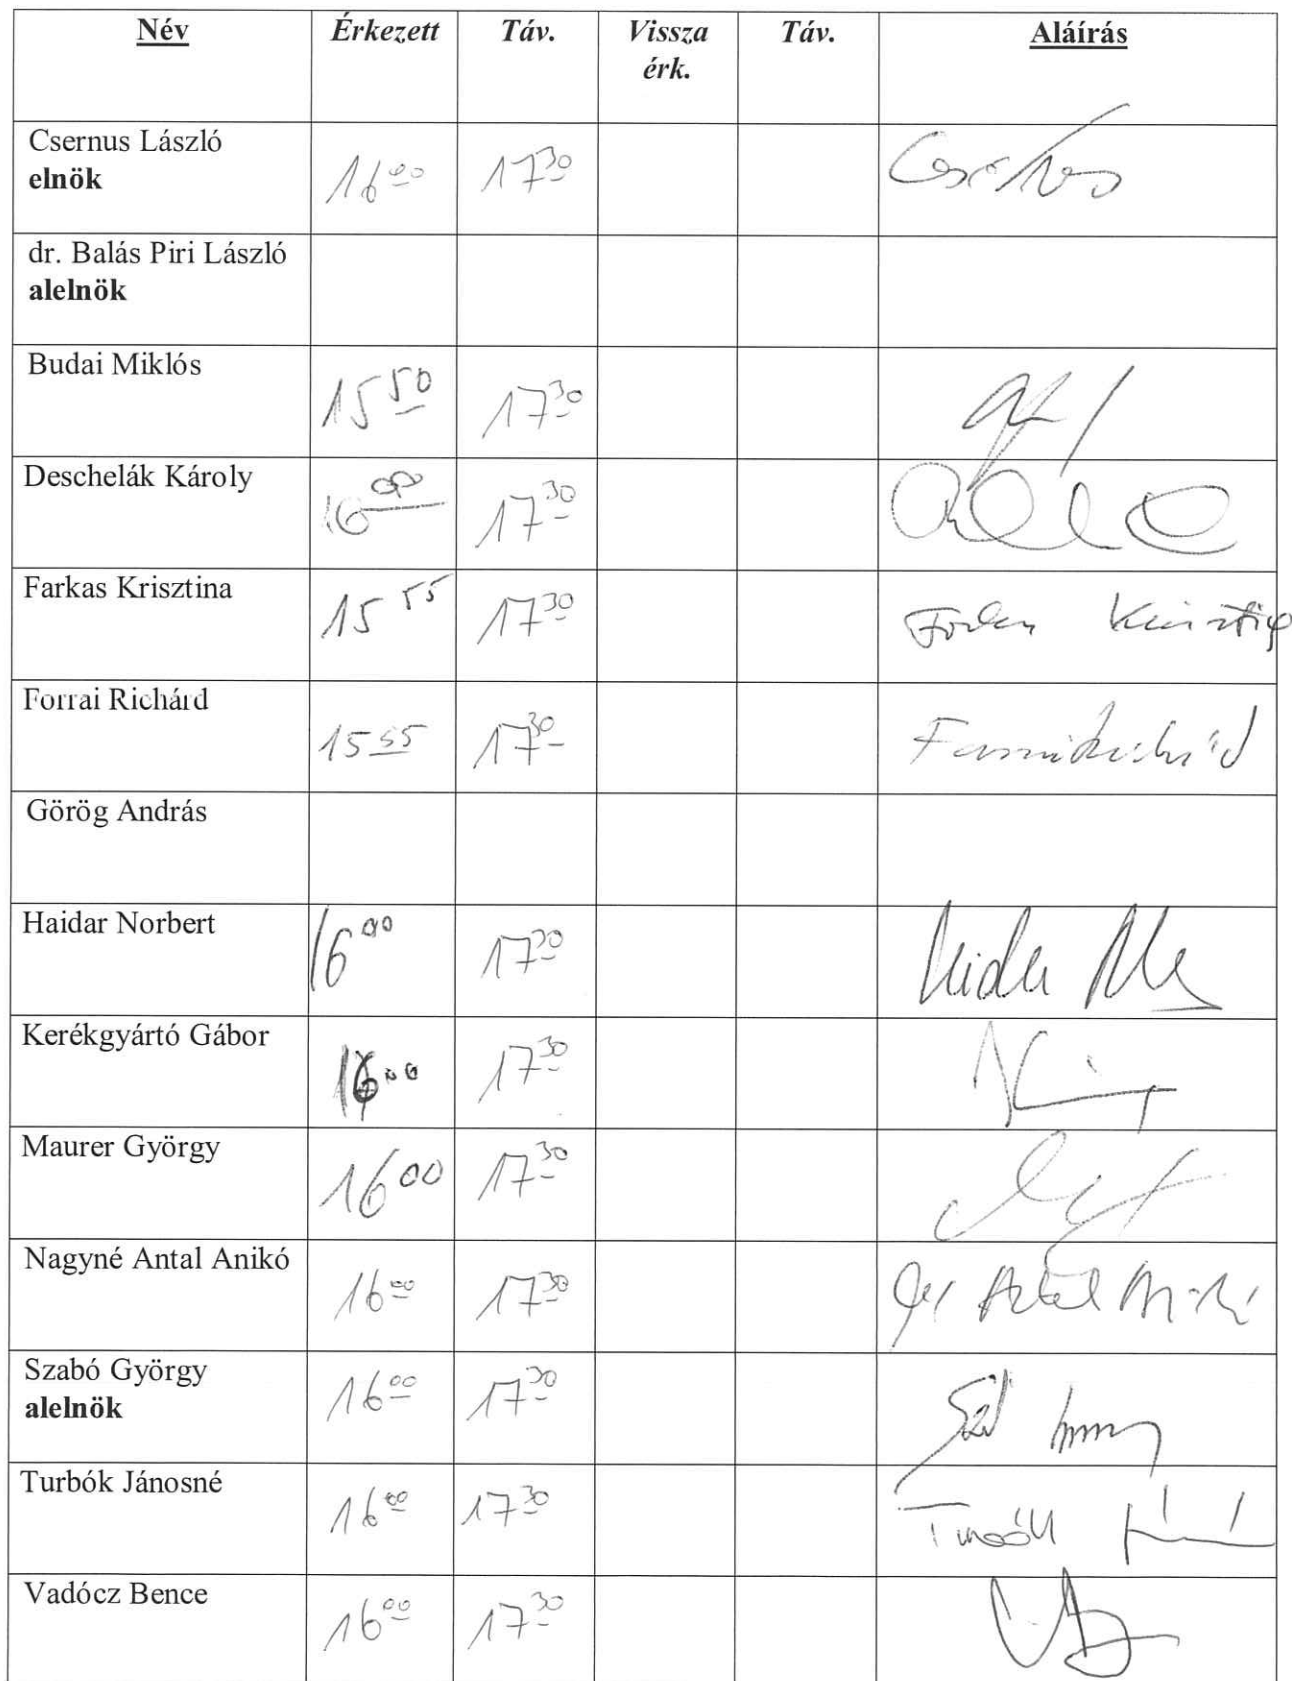 Név Érkezett Táv. Vissza érk. Táv. Aláírás
Csernus László 16 00 17 30
elnök
dr. Balás Piri László
alelnök
Budai Miklós 15 50 17 30
Deschelák Károly 16 00 17 30
Farkas Krisztina 15 55 17 30 Farkas Krisztina
Forrai Richárd 15 55 17 30 Forrai Richárd
Görög András
Haidar Norbert 16 00 17 30
Kerékgyártó Gábor 16 00 17 30
Maurer György 16 00 17 30
Nagyné Antal Anikó 16 00 17 30
Szabó György 16 00 17 30
alelnök
Turbók Jánosné 16 00 17 30
Vadócz Bence 16 00 17 30